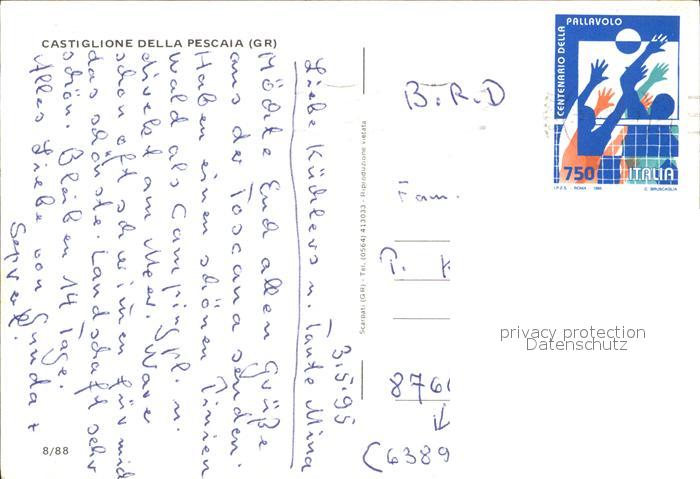 CASTIGLIONE DELLA PESCAIA (GR)
3.5.95
Liebe Küchlers u. Tante Mina
Möchte Euch allen Grüße
aus der Toscana senden.
Haben einen schönen Pinien
wald als Campingpl. u.
direkt am Meer. Waren
schon oft schwimmen für mich
das schönste. Landschaft sehr
schön. Bleiben 14 Tage.
Alles Liebe von Gunda +
8/88
Scarpati (GR) - Tel. (0564) 413033 - Riproduzione vietata
B.R.D
Fam.
P. K
8761
(6389
CENTENARIO DELLA PALLAVOLO
750 ITALIA
I.P.Z.S. - ROMA - 1995 C. BRUSCAGLIA
privacy protection
Datenschutz